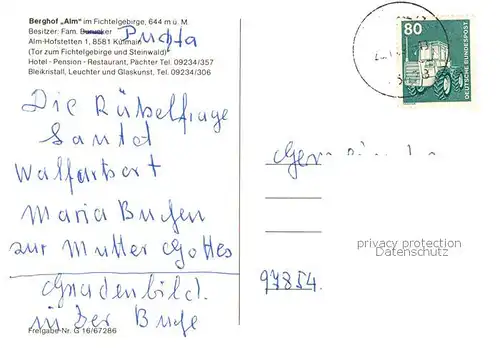 Berghof „Alm" im Fichtelgebirge, 644 m ü. M.
Besitzer: Fam. Puchta
Alm-Hofstetten 1, 8581 Kulmain
(Tor zum Fichtelgebirge und Steinwald)
Hotel - Pension - Restaurant, Pächter Tel. 09234/357
Bleikristall, Leuchter und Glaskunst, Tel. 09234/306
Die Rätselfrage
lautet
Walfartsort
Maria Buchen
zur Mutter Gottes
Gnadenbild
in der Buche
Freigabe-Nr. G 16/67286
80
DEUTSCHE BUNDESPOST
97854.
privacy protection
Datenschutz